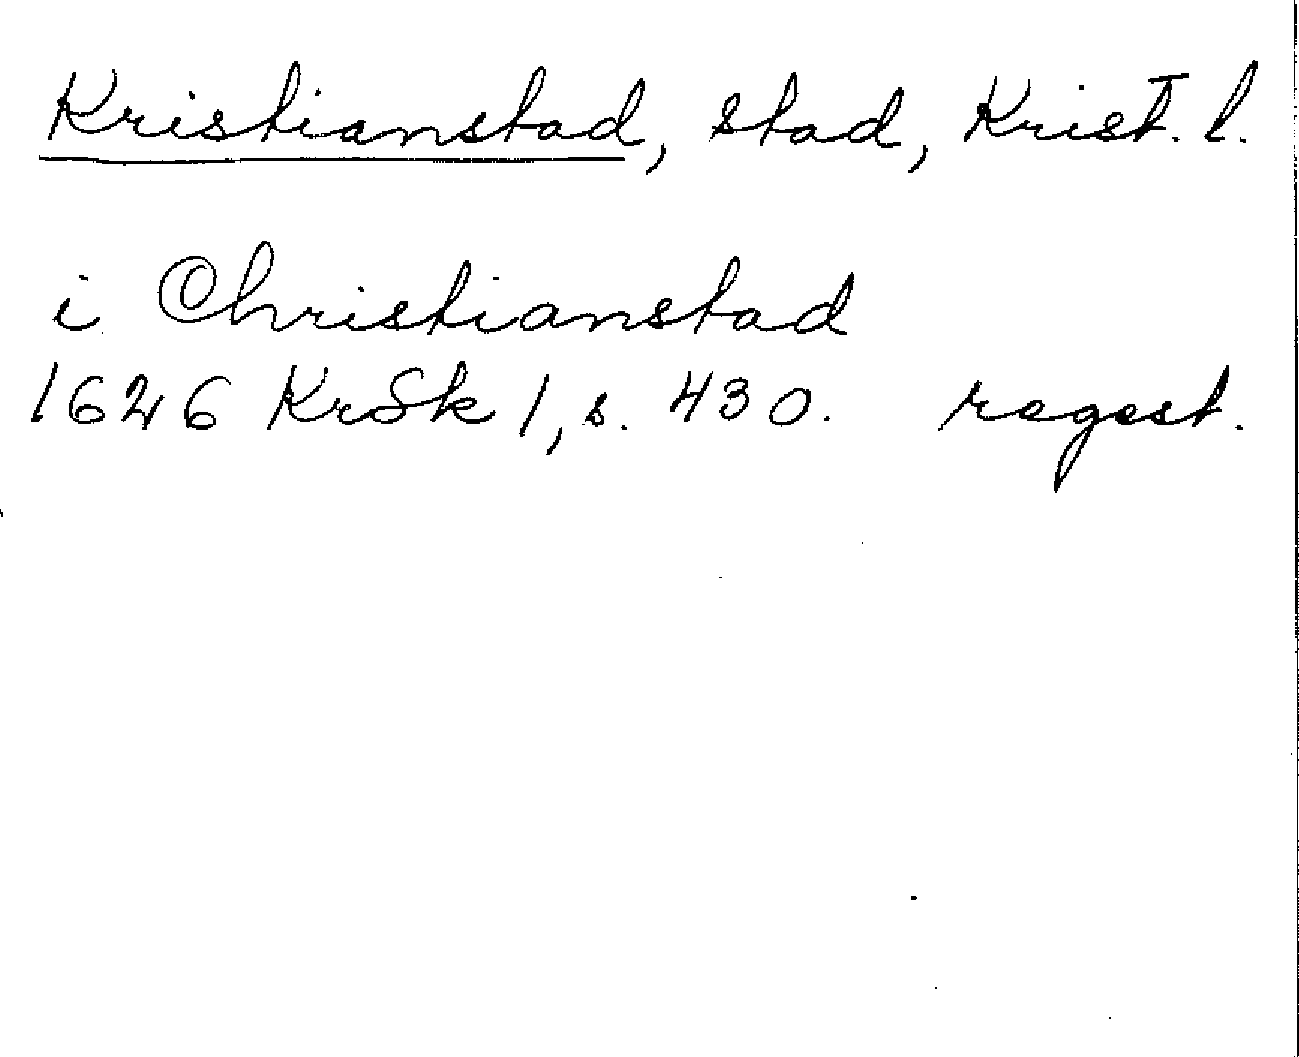 Kristianstad, stad, Krist. l.
i Christianstad
1626 KrSk 1, s. 430. regest.